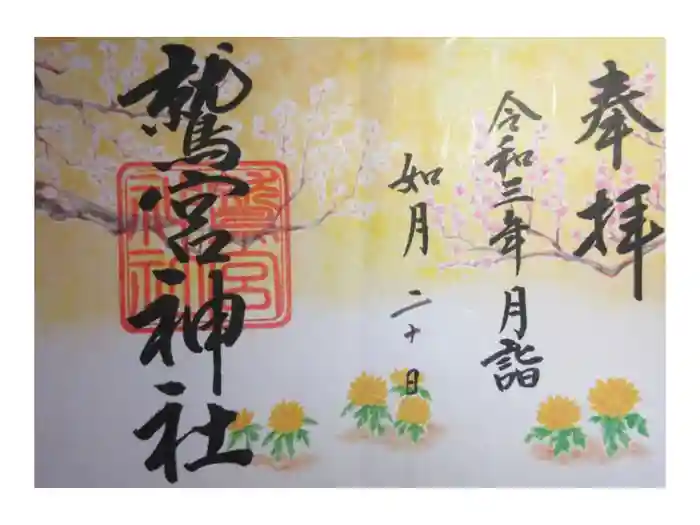 奉拝
令和三年月詣
如月
二十日
鷲宮神社
鷲宮
神社